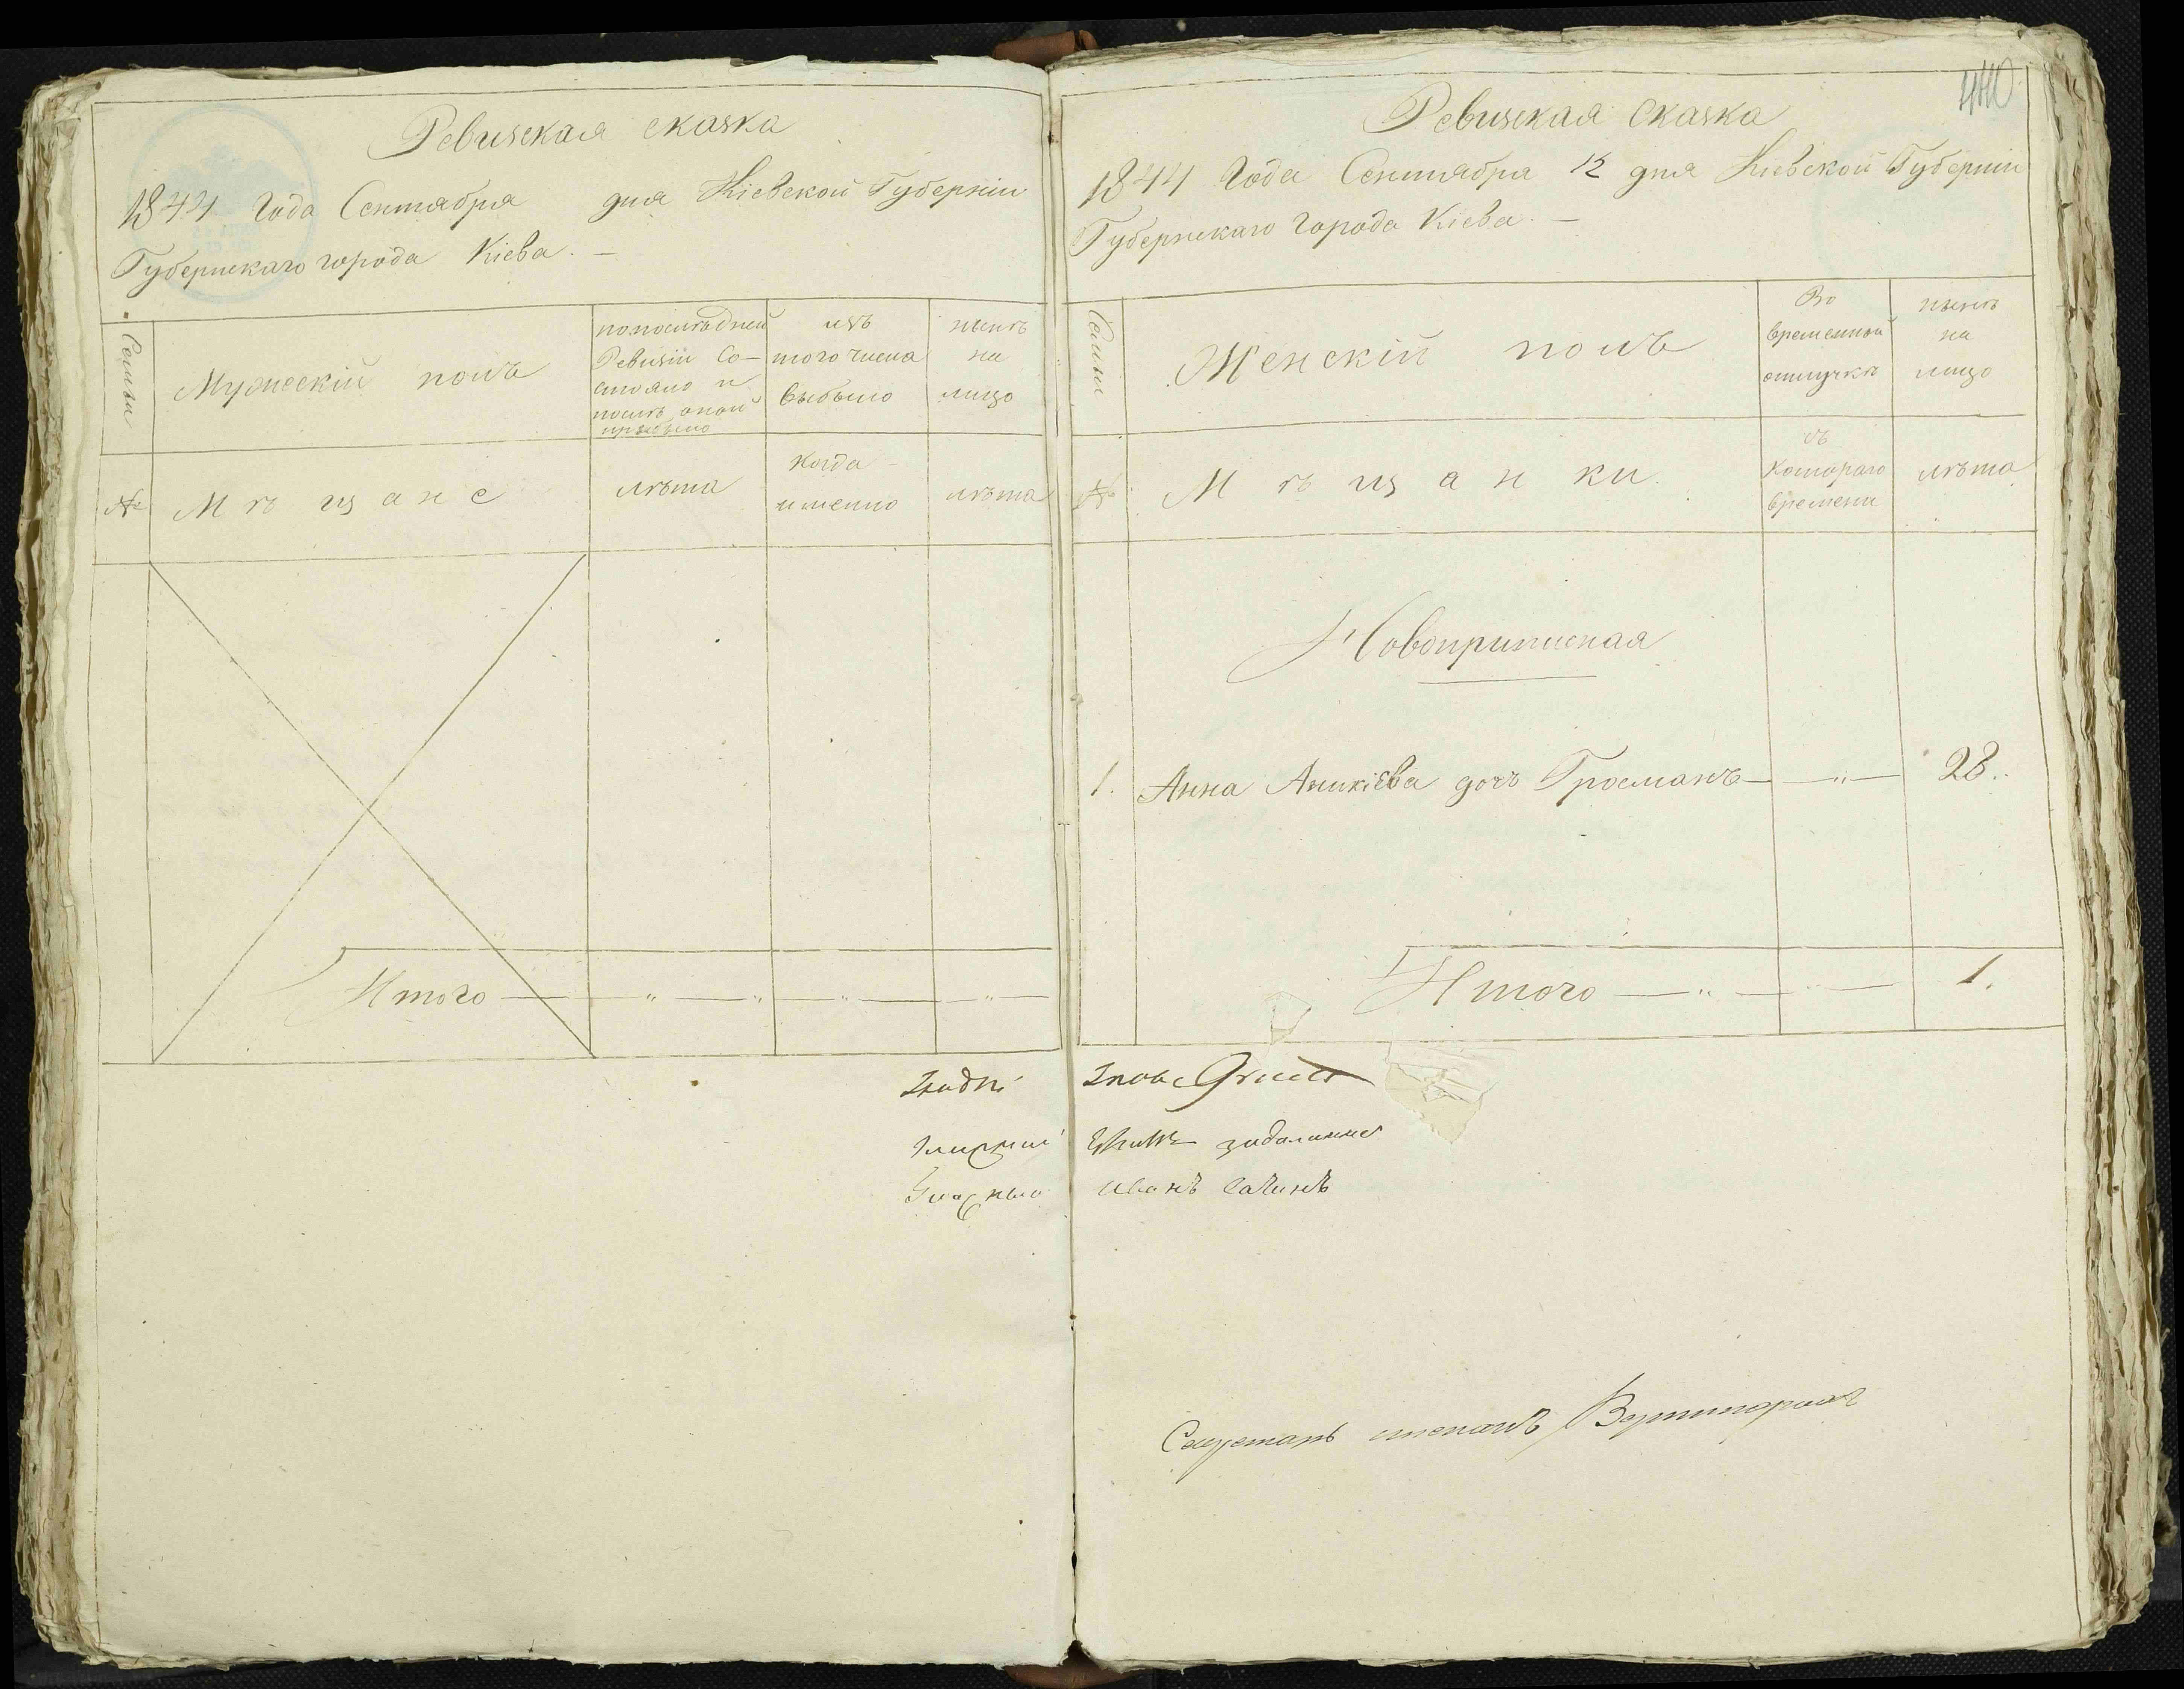 Ревизская сказка
1844 года Сентября дня Кіевской Губерніи
Губернскаго города Кіева. —
Семьи
Мужескій полъ
по послѣдней
Ревизіи Со-
стояло и
послѣ оной
прибыло
изъ
того числа
выбыло
нынѣ
на
лицо
№
Мѣщане
лѣта
когда
именно
лѣта
Итого — " — " — " — " —
440
Ревизская Сказка
1844 года Сентября 12 дня Кіевской Губерніи
Губернскаго города Кіева. —
Семьи
Женскій полъ
Во
временной
отлучкѣ
нынѣ
на
лицо
№
Мѣщанки.
съ
котораго
времени
лѣта
Новоприписная
1. Анна Аникіева дочь Гросманъ — " — 28.
Итого — " — 1.
Гласный Иванъ
Секретарь